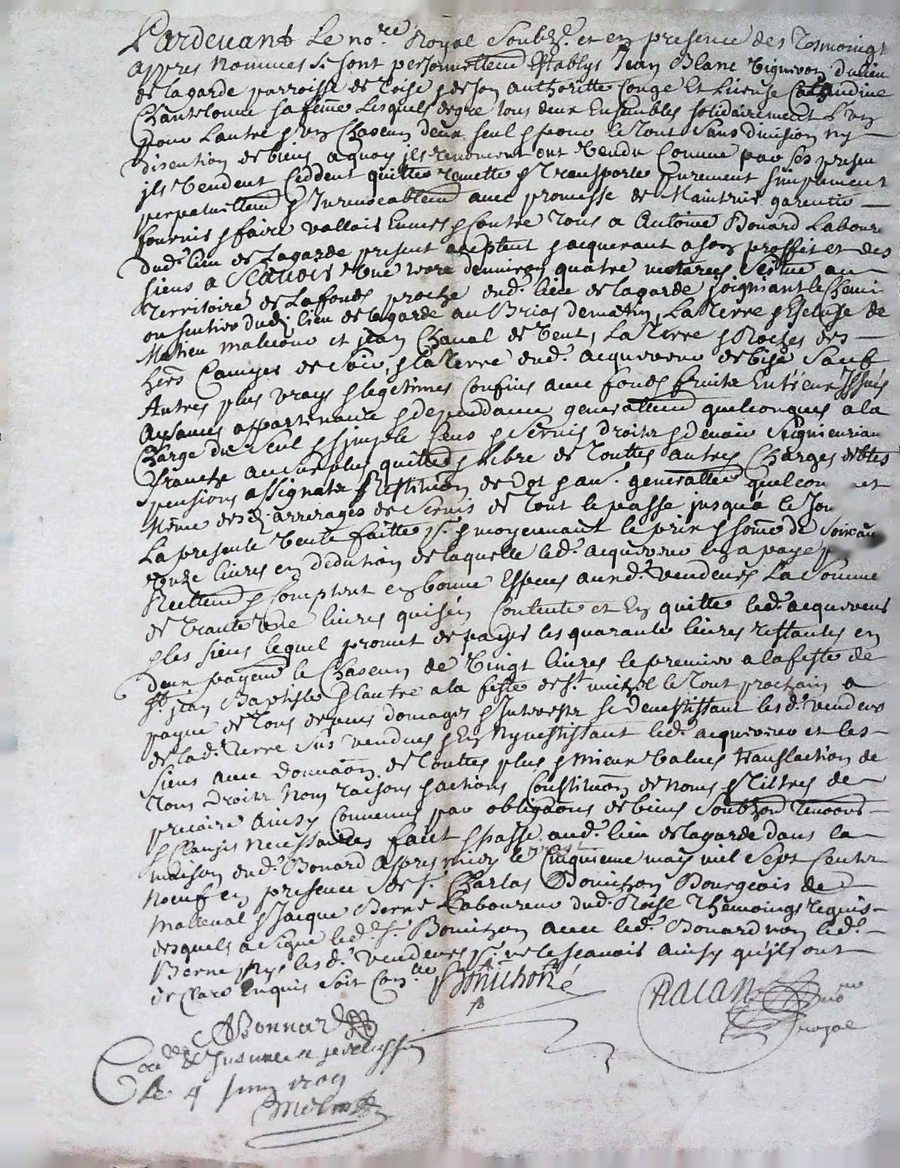 Pardevant Le no.re Royal Soubz.é et en presence des Tesmoings
appres nommés se sont personnellem Establys Jean Blanc Vigneron du lieu
de lagarde parroisse de Roise & de son Authoritte Conge Et License
Chantelonne sa feme Lesquels degre tous deux Ensembles solidairement L'un
pour Lautre & un Chascun deux seul & pour le tout sans division ny
discution de biens a quoy ils renoncent ont Vendu Comme par ses presen
ils Vendent Ceddent quitte remette & transporte purement simplement
perpetuellem & Irrevocablem avec promesse de Maintenir garentir
fournir & faire vallois Envers & Contre Tous a Antoine Bonard Labour
dud. lieu de Lagarde present aceptent & acquerant a son proffit et des
siens a Scavoir Une terre denviron quatre metarees Scitue au
Territoire de Lafonds proche dud. lieu de lagarde joigniant le Chemi
ou sentier dud. lieu de lagarde au de matin, La terre & de
Mathieu et jean Chaval de Vent, La terre & Roches des
hers de Soir, & la terre dud. acquereur de bise Sauf
Autres plus vrays & legitimes Confins avec fonds fruits Entrées Issües
Aysances appartenance & dependance generallem quelconques a la
Charge du seul & simple Cens & Servis droits & devoir Seigneuriau
franche au surplus quitte & libre de toutes autres Charges debtes
pensions assignats Restitution de Dot & au. generalles quelcon et
Même des arrerages de servis de tout le passe jusqua le Jou
La presente Vente faitte & moyennant le prix & some de Soixan
onze livres en diduction de laquelle led. acquereur en a paye
Reellem & Comptant en bonne Especes aud. vendeurs La Somme
de trante Une livres quisén Contente et En quitte led. acquereur
& les siens lequel promet de payer les quarante livres restantes en
deux payem le Chascun de Vingt livres le premier a la feste de
St jean Baptiste & lautre a la feste de St. michel le tout prochain a
payne de tous depens domages & Interestz se devestissant les d. vendeurs
de lad. terre sus vendues & En Nynvestissant led. acquereur et les
siens avec donnaōn de toutes plus & mieux Values translaction de
tous Droits Nom raisons & actions Constitution de Noms & tiltres de
precaire Ainsy Convenu par obligaōns de biens Soubzōn renonō
& Clauzes Necessaires fait & passe aud. lieu de lagarde dans la
maison dud. Bonard Apres midy le Cinquieme may mil Sept Centz
Noeuf en presence de S. Charles Bonichon Bourgeois de
Malleval & Jacque Berne Laboureur dud. Roise Thémoings requis
desquels a Signé led. Sr. Bonichon avec led. Bonard non led.
Berne ny led. vendeurs pr. ne le scavoir Ainsy quils ont
de Clare Enquis Soit
Bonichon
Racan no.re royal
ABonnard
le 4 Juin 1709